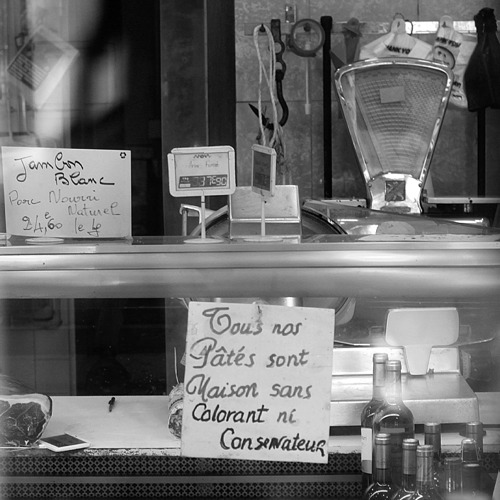 Jambon
Blanc
Porc Nourri
Naturel
24,€60 le kg
37€90
Tous nos
Pâtés sont
Maison sans
Colorant ni
Conservateur